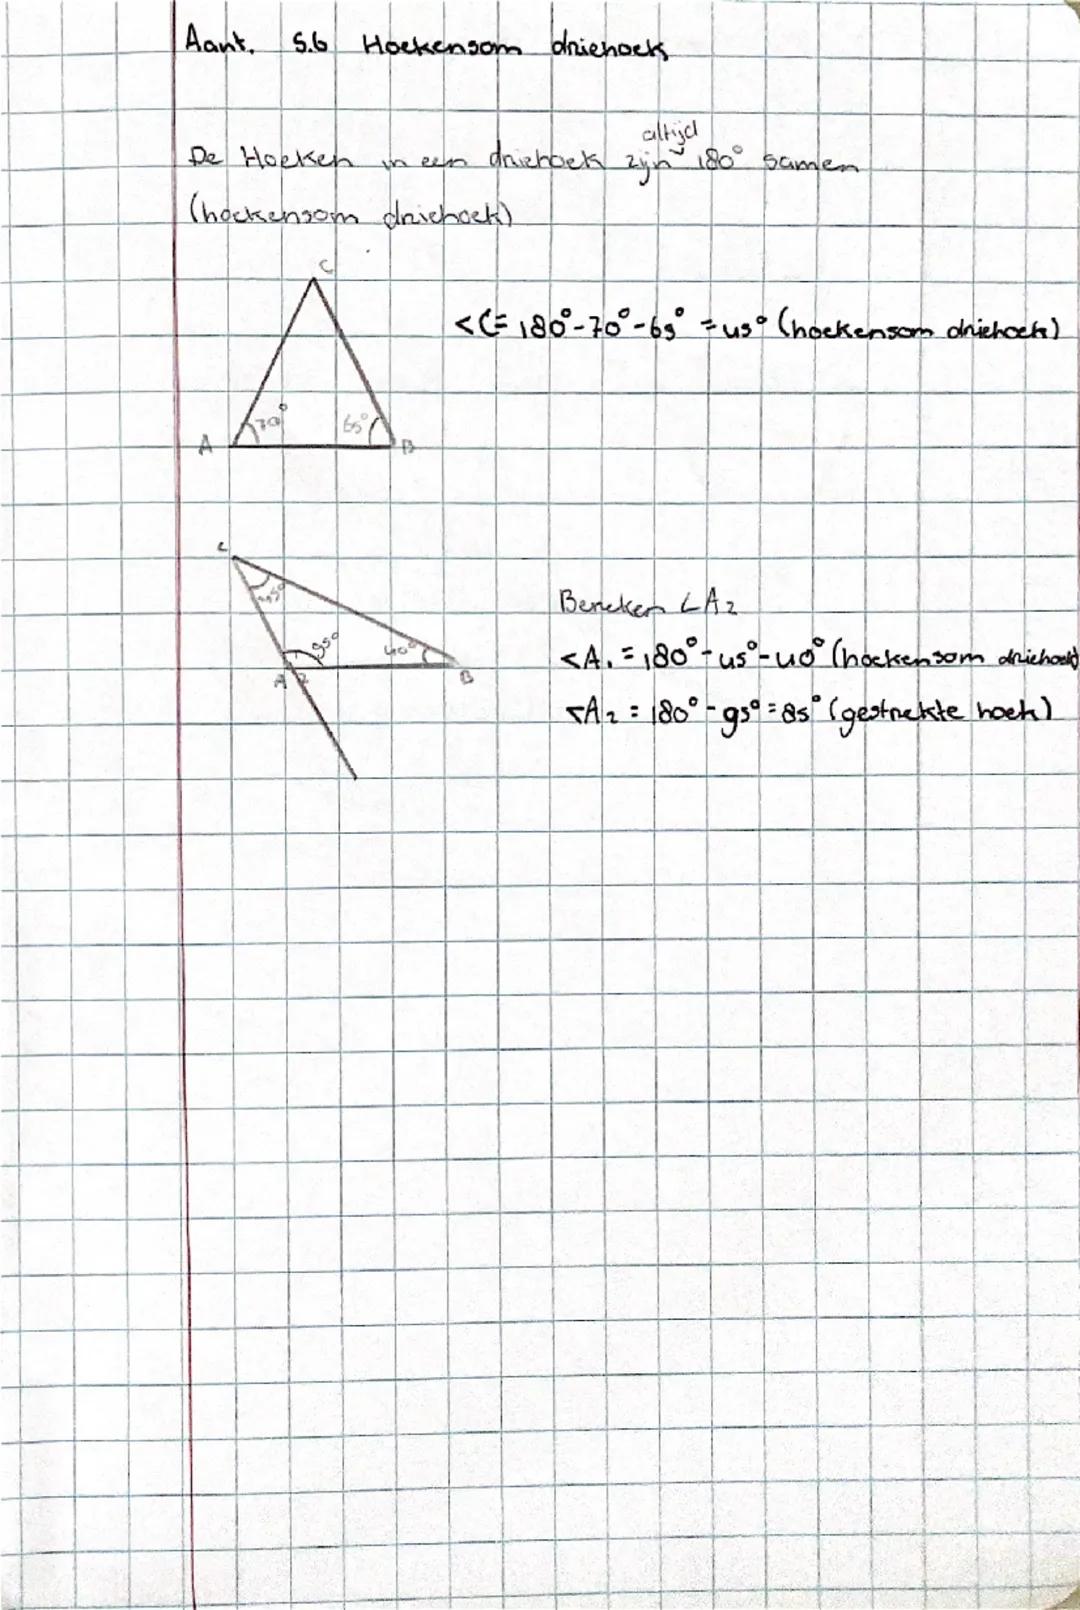 Aant. 5.6 Hoekensom driehoek
altijd
De Hoeken in een driehoek zijn 180° samen
(hoekensom driehoek)
C
<C= 180°-70°-65° =45° (hoekensom driehoek)
70° 65°
A B
C
45°
Bereken ∠A2
95° 40°
<A1 = 180°-45°-40° (hoekensom driehoek)
A 2 B
<A2 = 180°-95°=85° (gestrekte hoek)